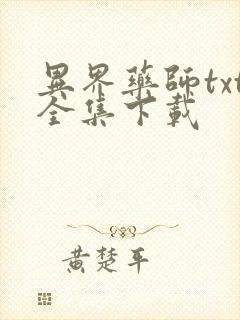 異界藥師txt
全集下載
黃楚平